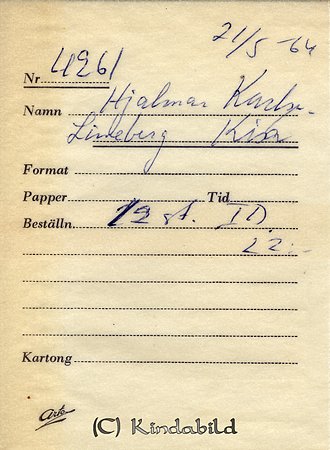 21/5-64
Nr 4261
Namn Hjalmar Karls-
Lineberg Kisa
Format
Papper Tid
Beställn. 12 st. ID
22:-
Kartong
Arto
(C) Kindabild